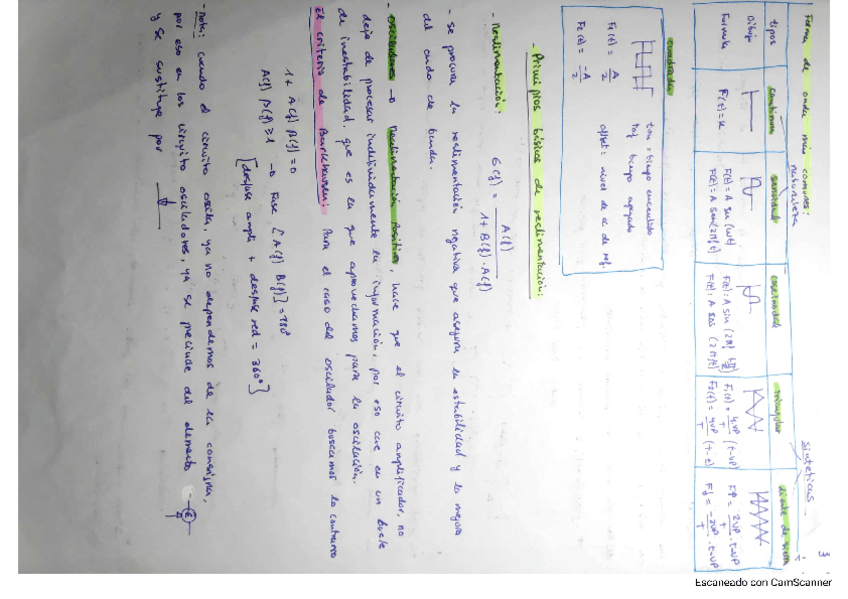 3
Formas de onda más comunes:
naturaleza
sintéticas
tipos continua senoidal cosenoidal triangular diente de sierra
Dibujo
Formula F(t)=k F(t)= A sin (wt) F(t): A sin
F(t)= A sin(2πft) F(t): A cos (2πft)
cuadrada
ton: tiempo encendido
toff tiempo apagado
offset: nivel de cc de ref.
F1(t) = A/2
F2(t) = -A/2
- Principios básicos de realimentación:
- Realimentación: G(f) = A(f) / 1+B(f)·A(f)
- se procura la realimentación negativa que asegura la estabilidad y la mejora
del ancho de banda.
- osciladores → Realimentación Positiva, hace que el circuito amplificador, no
deje de procesar indefinidamente la información, por eso cae en un bucle
de inestabilidad, que es la que aprovechamos para la oscilación.
El criterio de Barkhausen: Para el caso del oscilador buscamos lo contrario
1 + A(f) β(f) = 0
A(f) β(f) ≥ 1 → Fase [A(f) B(f)] = 180°
[desfase ampli + desfase red = 360°]
- Nota: cuando el circuito oscila, ya no dependemos de la consigna,
por eso en los circuitos osciladores, ya se precinde del elemento
y se sustituye por
Escaneado con CamScanner